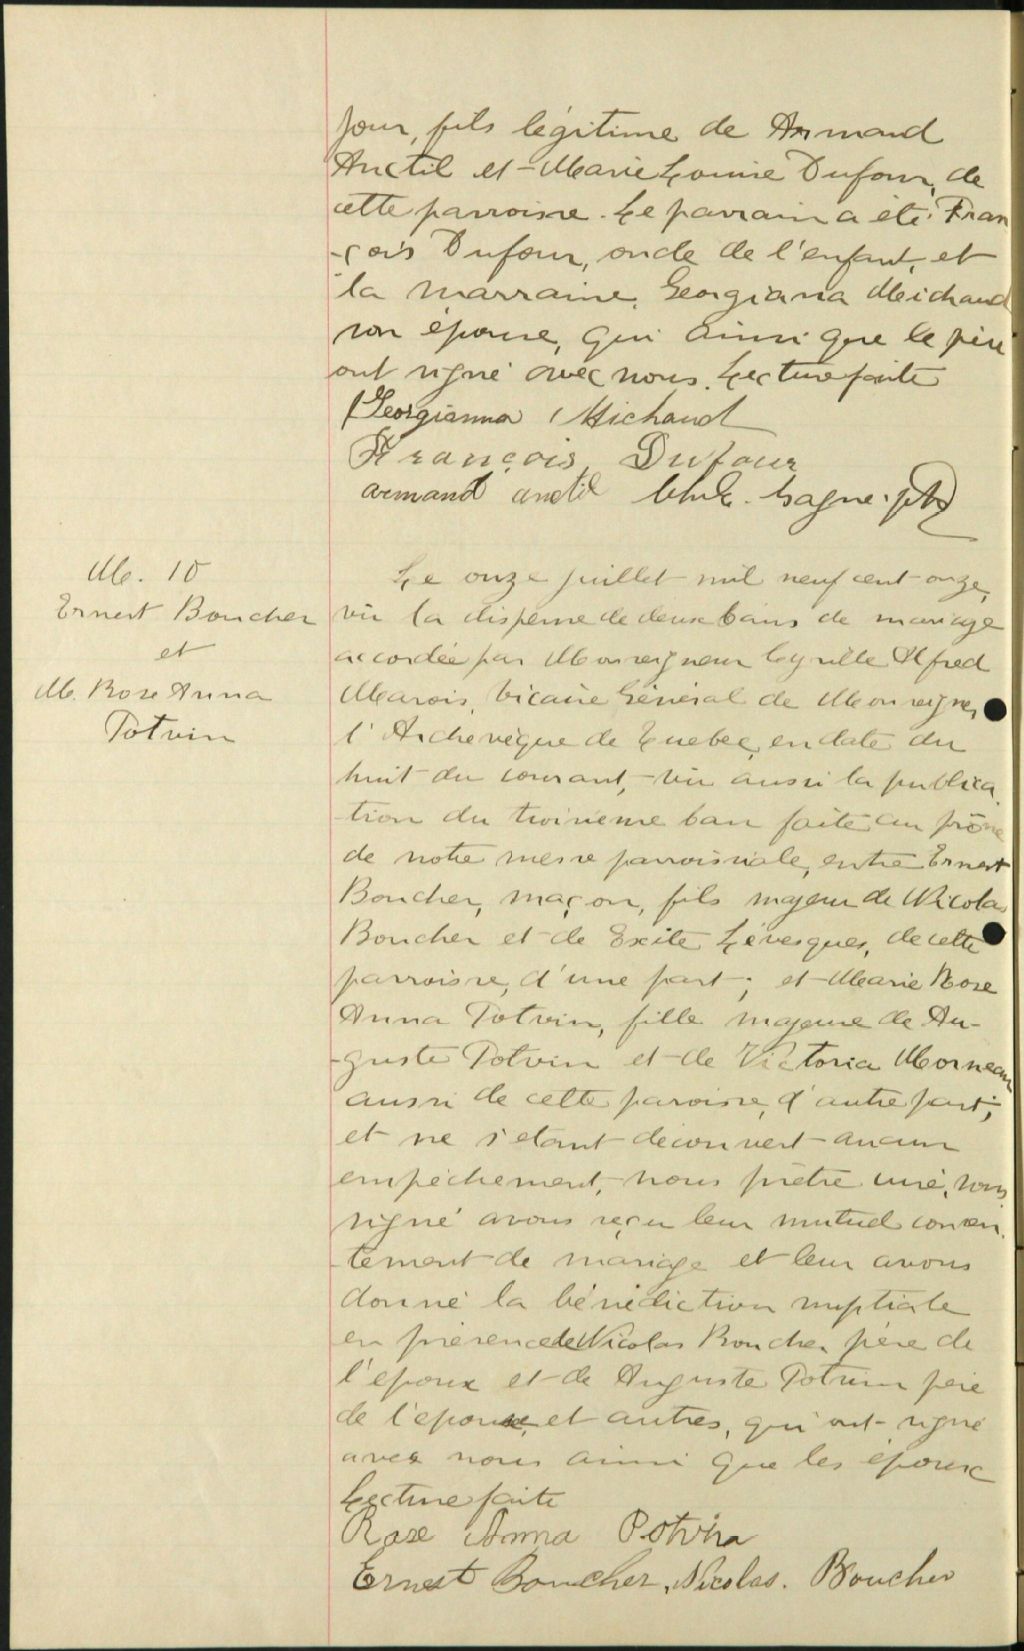 jour, fils légitime de Armand
Anctil et Marie Louise Dufour, de
cette parroisse. Le parrain a été Fran
-çois Dufour, oncle de l'enfant, et
la marraine, Georgiana Michaud
son épouse, qui ainsi que le père
ont signé avec nous. Lecture faite
Georgianna Michaud
François Dufour
armand anctil Gagné. ptre
M. 10
Ernest Boucher
et
M. Rose Anna
Potvin
Le onze juillet mil neuf cent onze,
vu la dispense de deux bans de mariage
accordée par Monseigneur Cyrille Alfred
Marois, Vicaire Général de Monseigneur
l'Archevèque de Québec, en date du
huit du courant, vu aussi la publica
-tion du troisième ban faite au prône
de notre messe parroissiale, entre Ernest
Boucher, maçon, fils majeur de Nicolas
Boucher et de Exite Lévesques, de cette
parroisse, d'une part; et Marie Rose
Anna Potvin, fille majeure de Au-
-guste Potvin et de Victoria Morneau
aussi de cette paroisse, d'autre part;
et ne s'étant découvert aucun
empêchement, nous prêtre curé, sous
signé avons reçu leur mutuel consen.
-tement de mariage et leur avons
donné la bénédiction nuptiale
en présence de Nicolas Boucher père de
l'époux et de Auguste Potvin père
de l'épouse, et autres, qui ont signé
avec nous ainsi que les époux
Lecture faite
Rose Anna Potvin
Ernest Boucher, Nicolas. Boucher